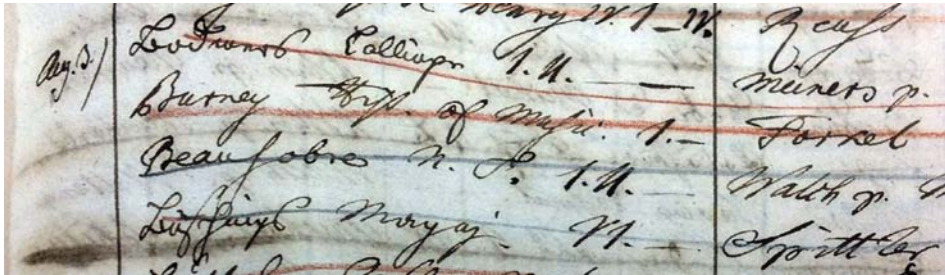 Henry VI. 1 – IV. Reuss
Aug. 3. Bodmers Calliope I. II. — Meiners p.
Burney Hist. of Music. 1. – Forkel
Beausobre N. T. I. II. — Walch p.
Büschings Magaz. VI. — Spittler